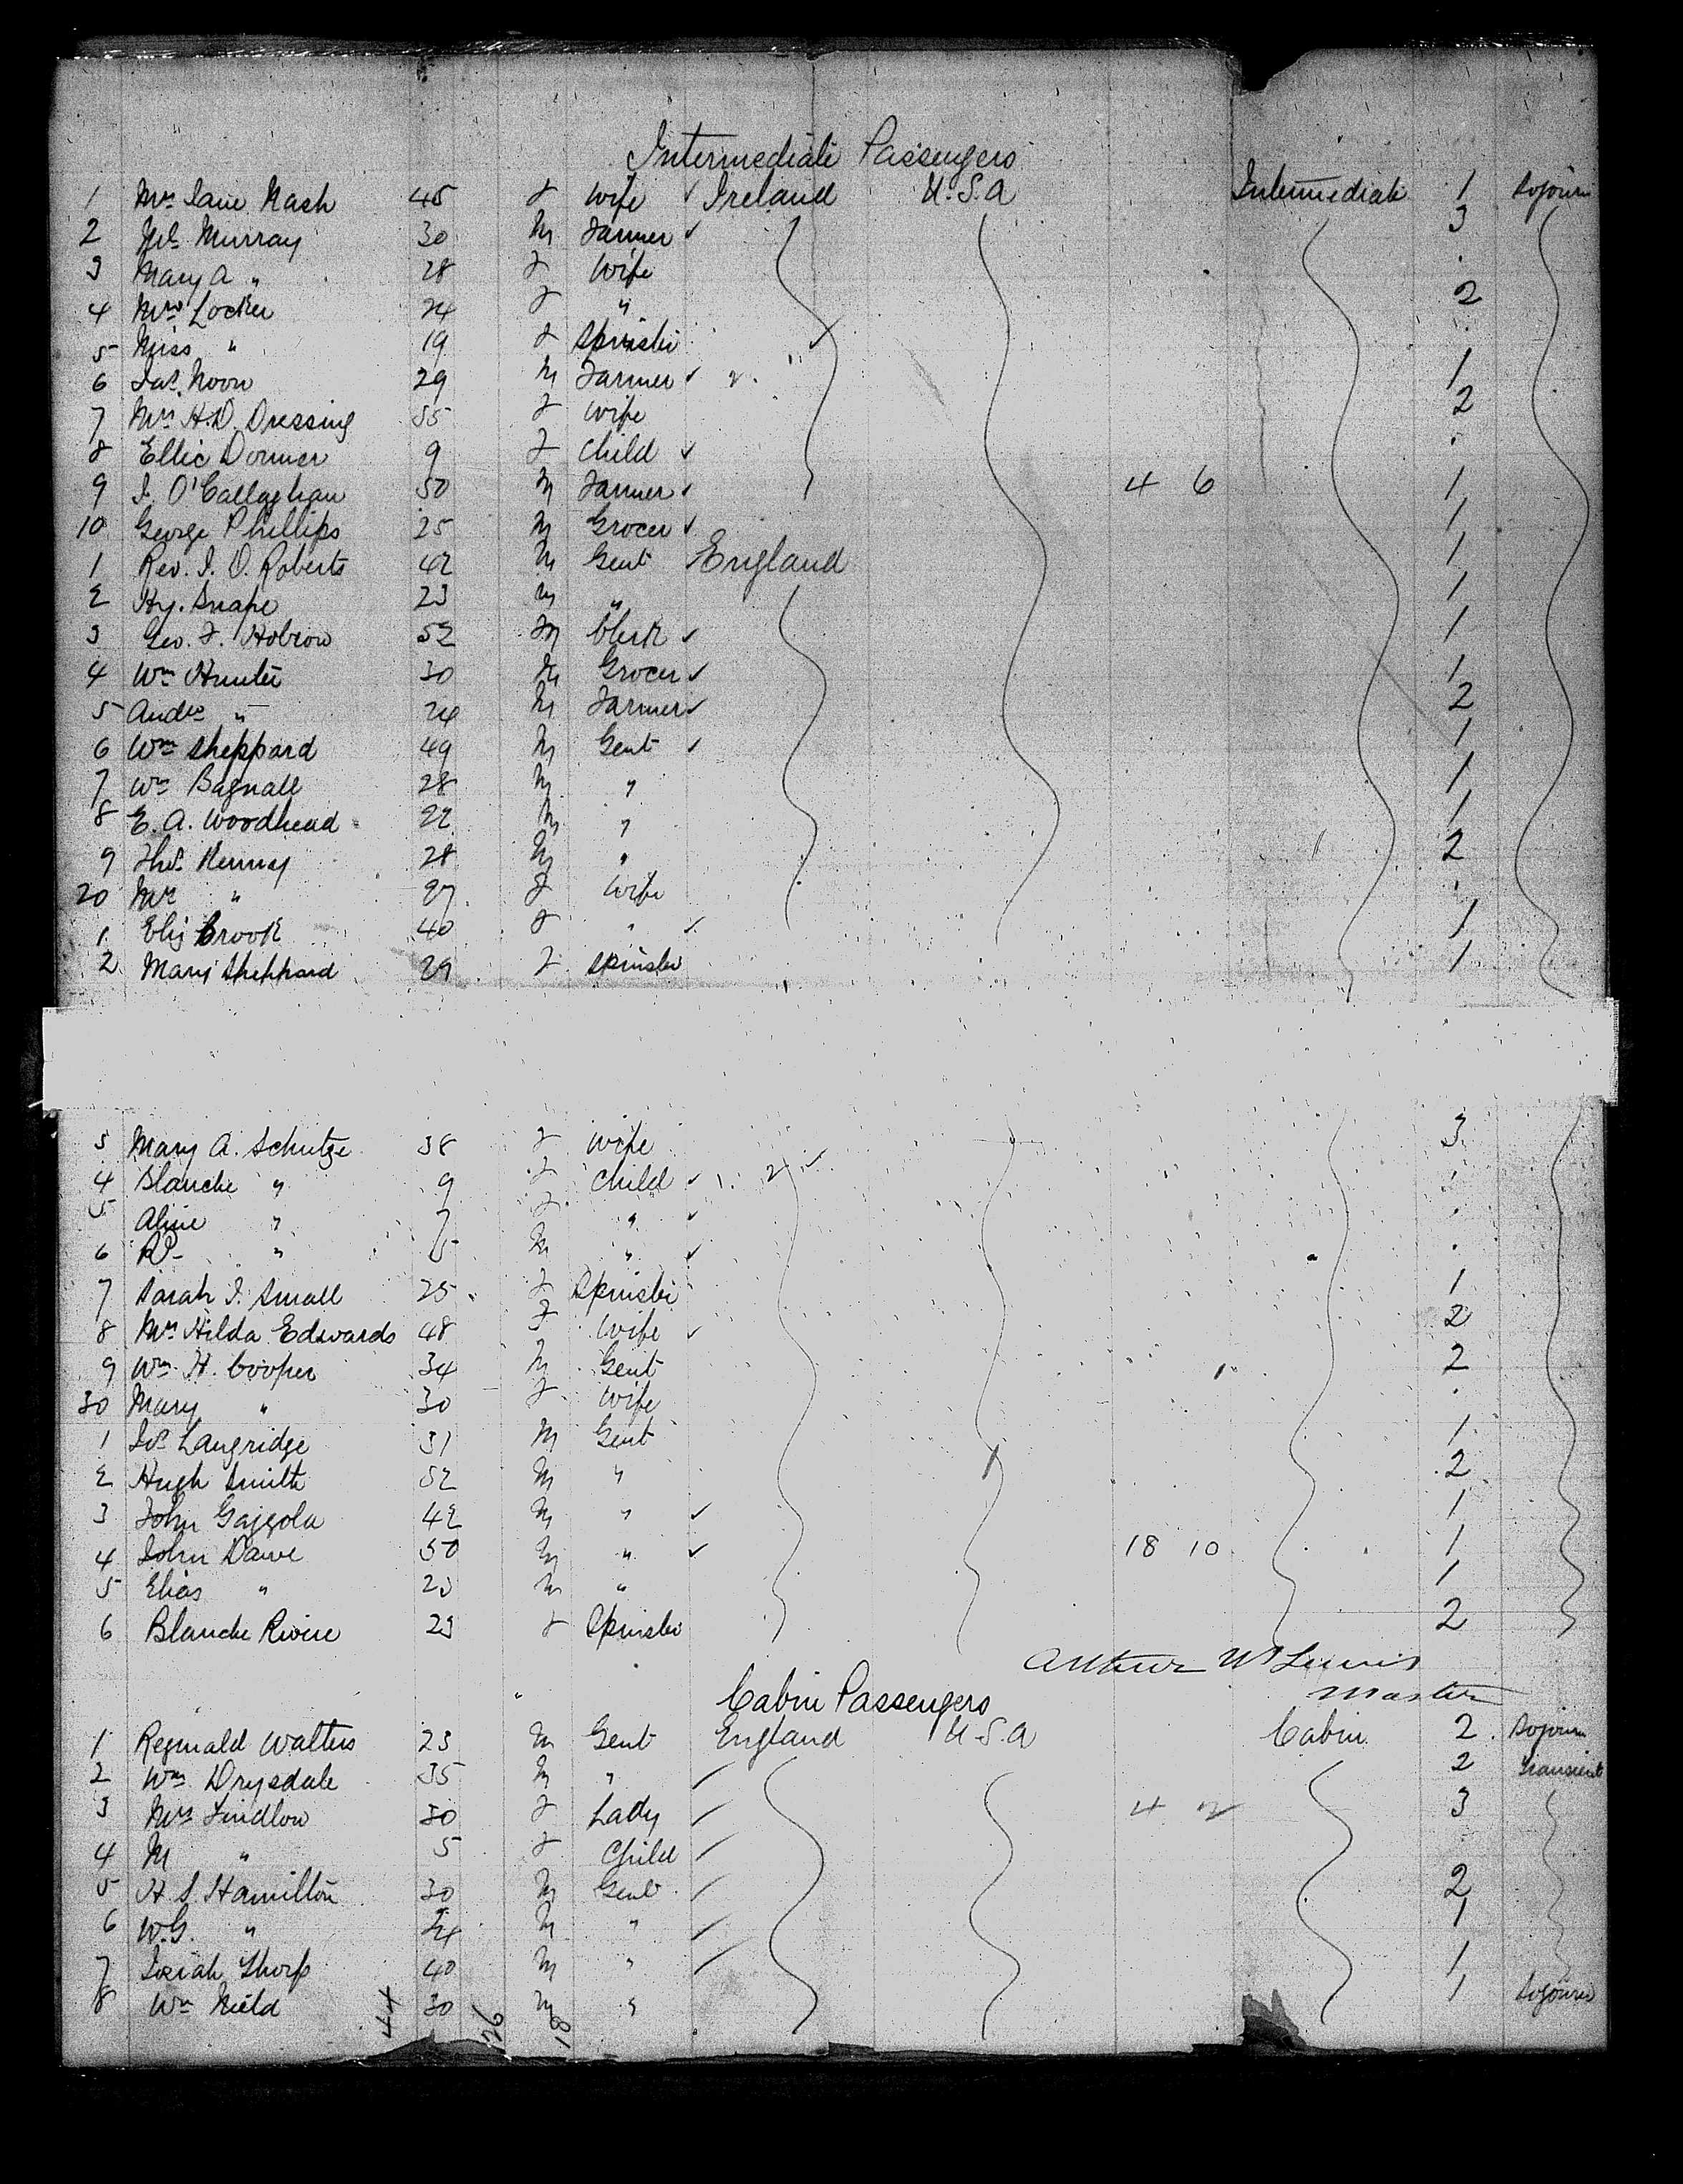 Intermediate Passengers
1 Mrs Jane Nash 45 F Wife Ireland U.S.A Intermediate 1 Sojourn
2 Murray 30 M Farmer 3
3 Mary A " 28 F Wife
4 Mrs Locker 24 F " 2
5 Miss " 19 F Spinster
6 Jas Noon 29 M Farmer 1
7 Mrs H.D. Dressing 55 F Wife 2
8 Ellie Dormer 9 F Child
9 J. O'Callaghan 50 M Farmer 4 6 1
10 George Phillips 25 M Grocer 1
1 Rev. J. O. Roberts 42 M Gent England 1
2 Hy. Snape 23 M " 1
3 Geo. F. Hobrow 52 M Clerk 1
4 Wm Hunter 30 M Grocer 1
5 Andw " 24 M Farmer 2
6 Wm Sheppard 49 M Gent 1
7 Wm Bagnall 28 M " 1
8 E. A. Woodhead 22 M " 1
9 Thos Kenney 28 M " 2
20 Mrs " 27 F Wife
1 Eliz Brook 40 F " 1
2 Mary Sheppard 29 F Spinster 1
3 Mary A. Schutze 38 F Wife 3
4 Blanche " 9 F Child
5 Aline " 7 F "
6 " 5 M "
7 Sarah J. Small 25 F Spinster 1
8 Mrs Hilda Edwards 48 F Wife 2
9 Wm H. Cooper 34 M Gent 2
30 Mary " 30 F Wife
1 Jos Langridge 31 M Gent 1
2 Hugh Smith 52 M " 2
3 John Gazzola 42 M " 1
4 John Dawe 50 M " 18 10 1
5 Elias " 23 M " 1
6 Blanche Riviere 23 F Spinster 2
Arthur W Lewis
Master
Cabin Passengers
1 Reginald Walters 23 M Gent England U.S.A Cabin 2 Sojourn
2 Wm Drysdale 35 M " 2 Transient
3 Mrs Findlow 30 F Lady 4 2 3
4 M " 5 F Child
5 H. S. Hamilton 30 M Gent 2
6 W.G. " 24 M " 1
7 Josiah Thorp 40 M " 1
8 Wm Nield 30 M " 1 Sojourn
44 26 18